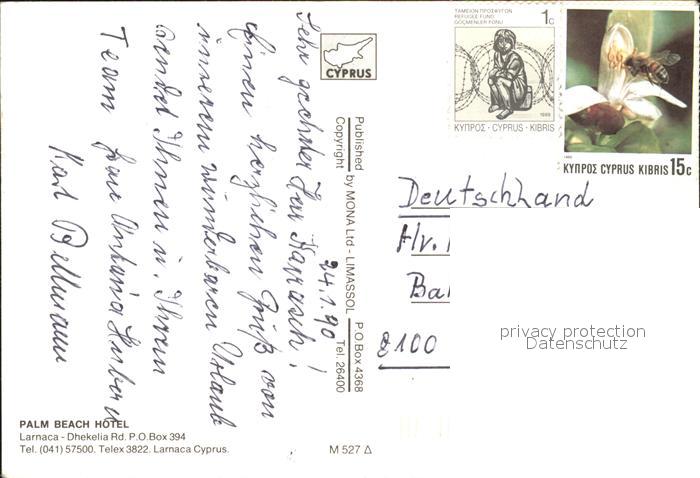 24.1.90
Sehr geehrter Herr
einen herzlichen Gruß von
unserem wunderbaren Urlaub
sendet Ihnen u. Ihrem
Team Frau
Karl
CYPRUS
Published by MONA Ltd - LIMASSOL P.O.Box 4368
Copyright Tel. 26400
ΤΑΜΕΙΟΝ ΠΡΟΣΦΥΓΩΝ
REFUGEE FUND
GÖÇMENLER FONU
1c
1989
ΚΥΠΡΟΣ · CYPRUS · KIBRIS
ΚΥΠΡΟΣ CYPRUS KIBRIS 15c
Deutschland
Hr.
Ba
8100
privacy protection
Datenschutz
PALM BEACH HOTEL
Larnaca - Dhekelia Rd. P.O.Box 394
Tel. (041) 57500. Telex 3822. Larnaca Cyprus.
M 527 Δ